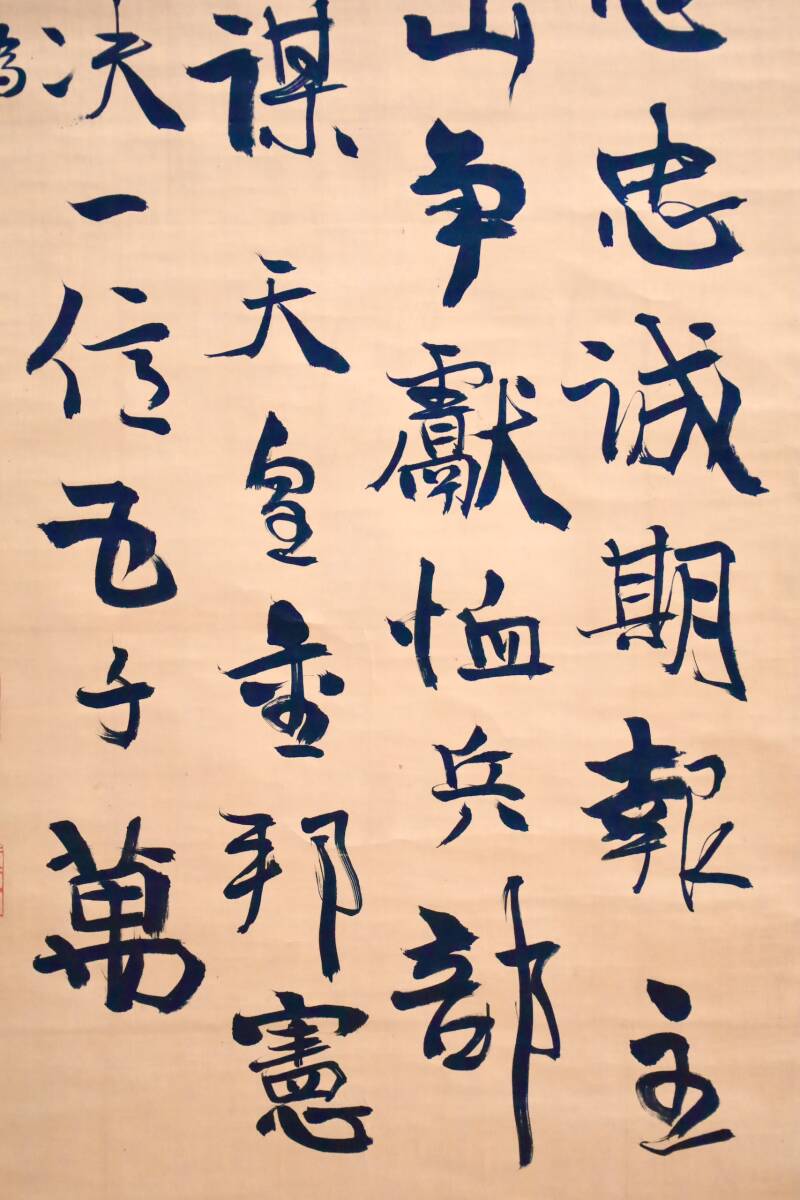 忠誠期報主
山爭獻恤兵部
謀天皇重邦憲
決一信五千萬